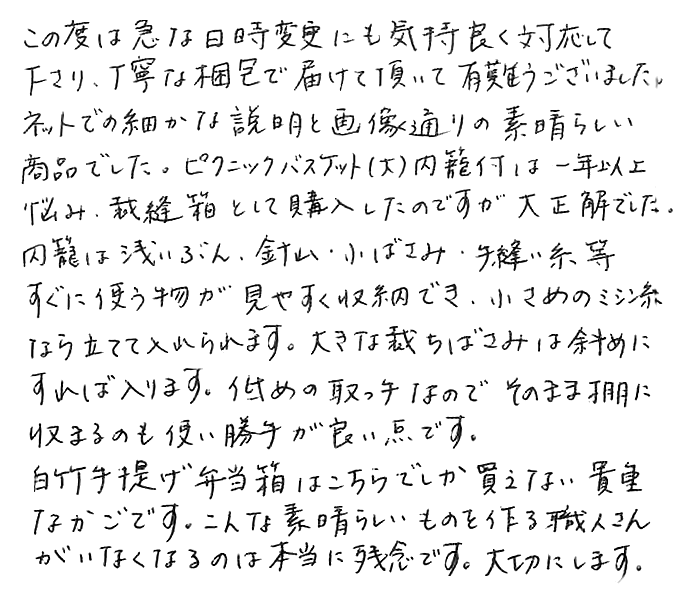 この度は急な日時変更にも気持良く対応して
下さり、丁寧な梱包で届けて頂いて有難うございました。
ネットでの細かな説明と画像通りの素晴らしい
商品でした。ピクニックバスケット(大)内籠付は一年以上
悩み、裁縫箱として購入したのですが大正解でした。
内籠は浅いぶん、針山・小ばさみ・手縫い糸等
すぐに使う物が見やすく収納でき、小さめのミシン糸
なら立てて入れられます。大きな裁ちばさみは斜めに
すれば入ります。低めの取っ手なのでそのまま棚に
収まるのも使い勝手が良い点です。
白竹手提げ弁当箱はこちらでしか買えない貴重
なかごです。こんな素晴らしいものを作る職人さん
がいなくなるのは本当に残念です。大切にします。